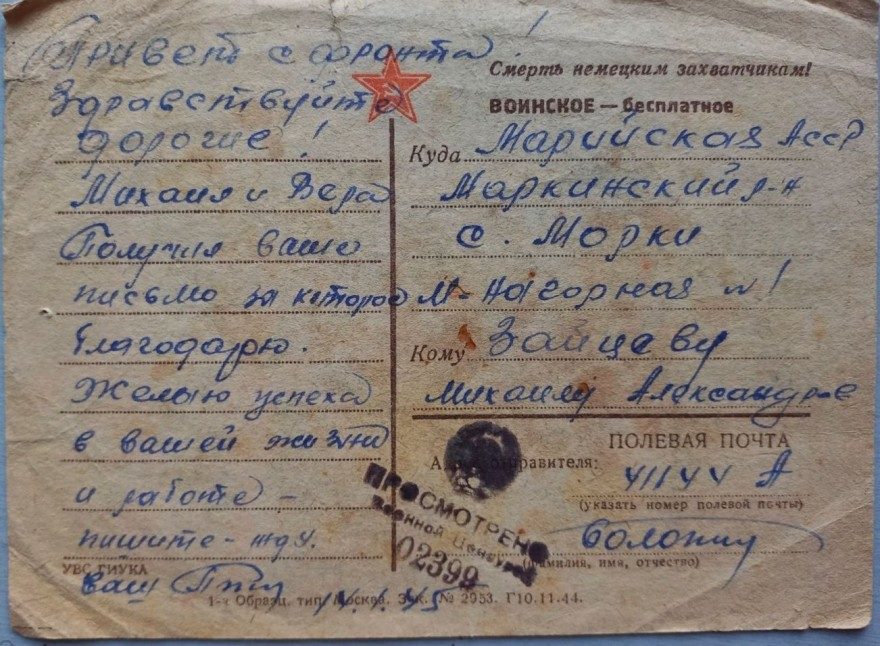 Привет с фронта!
Здравствуйте
дорогие!
Михаил и Вера
Получил ваше
письмо за которое
благодарю.
Желаю успеха
в вашей жизни
и работе -
пишите - жду.
Ваш
УВС ГИУКА
Смерть немецким захватчикам!
ВОИНСКОЕ — бесплатное
Куда Марийская АССР
Маркинский р-н
с. Морки
М-Нагорная
Кому Зайцеву
Михаилу Александров
ПОЛЕВАЯ ПОЧТА
отправителя: 41144 А
(указать номер полевой почты)
(фамилия, имя, отчество)
ПРОСМОТРЕНО
Военной Цензурой
02399
1-я Образц. тип. Москва. Зак. № 2953. Г10.11.44.